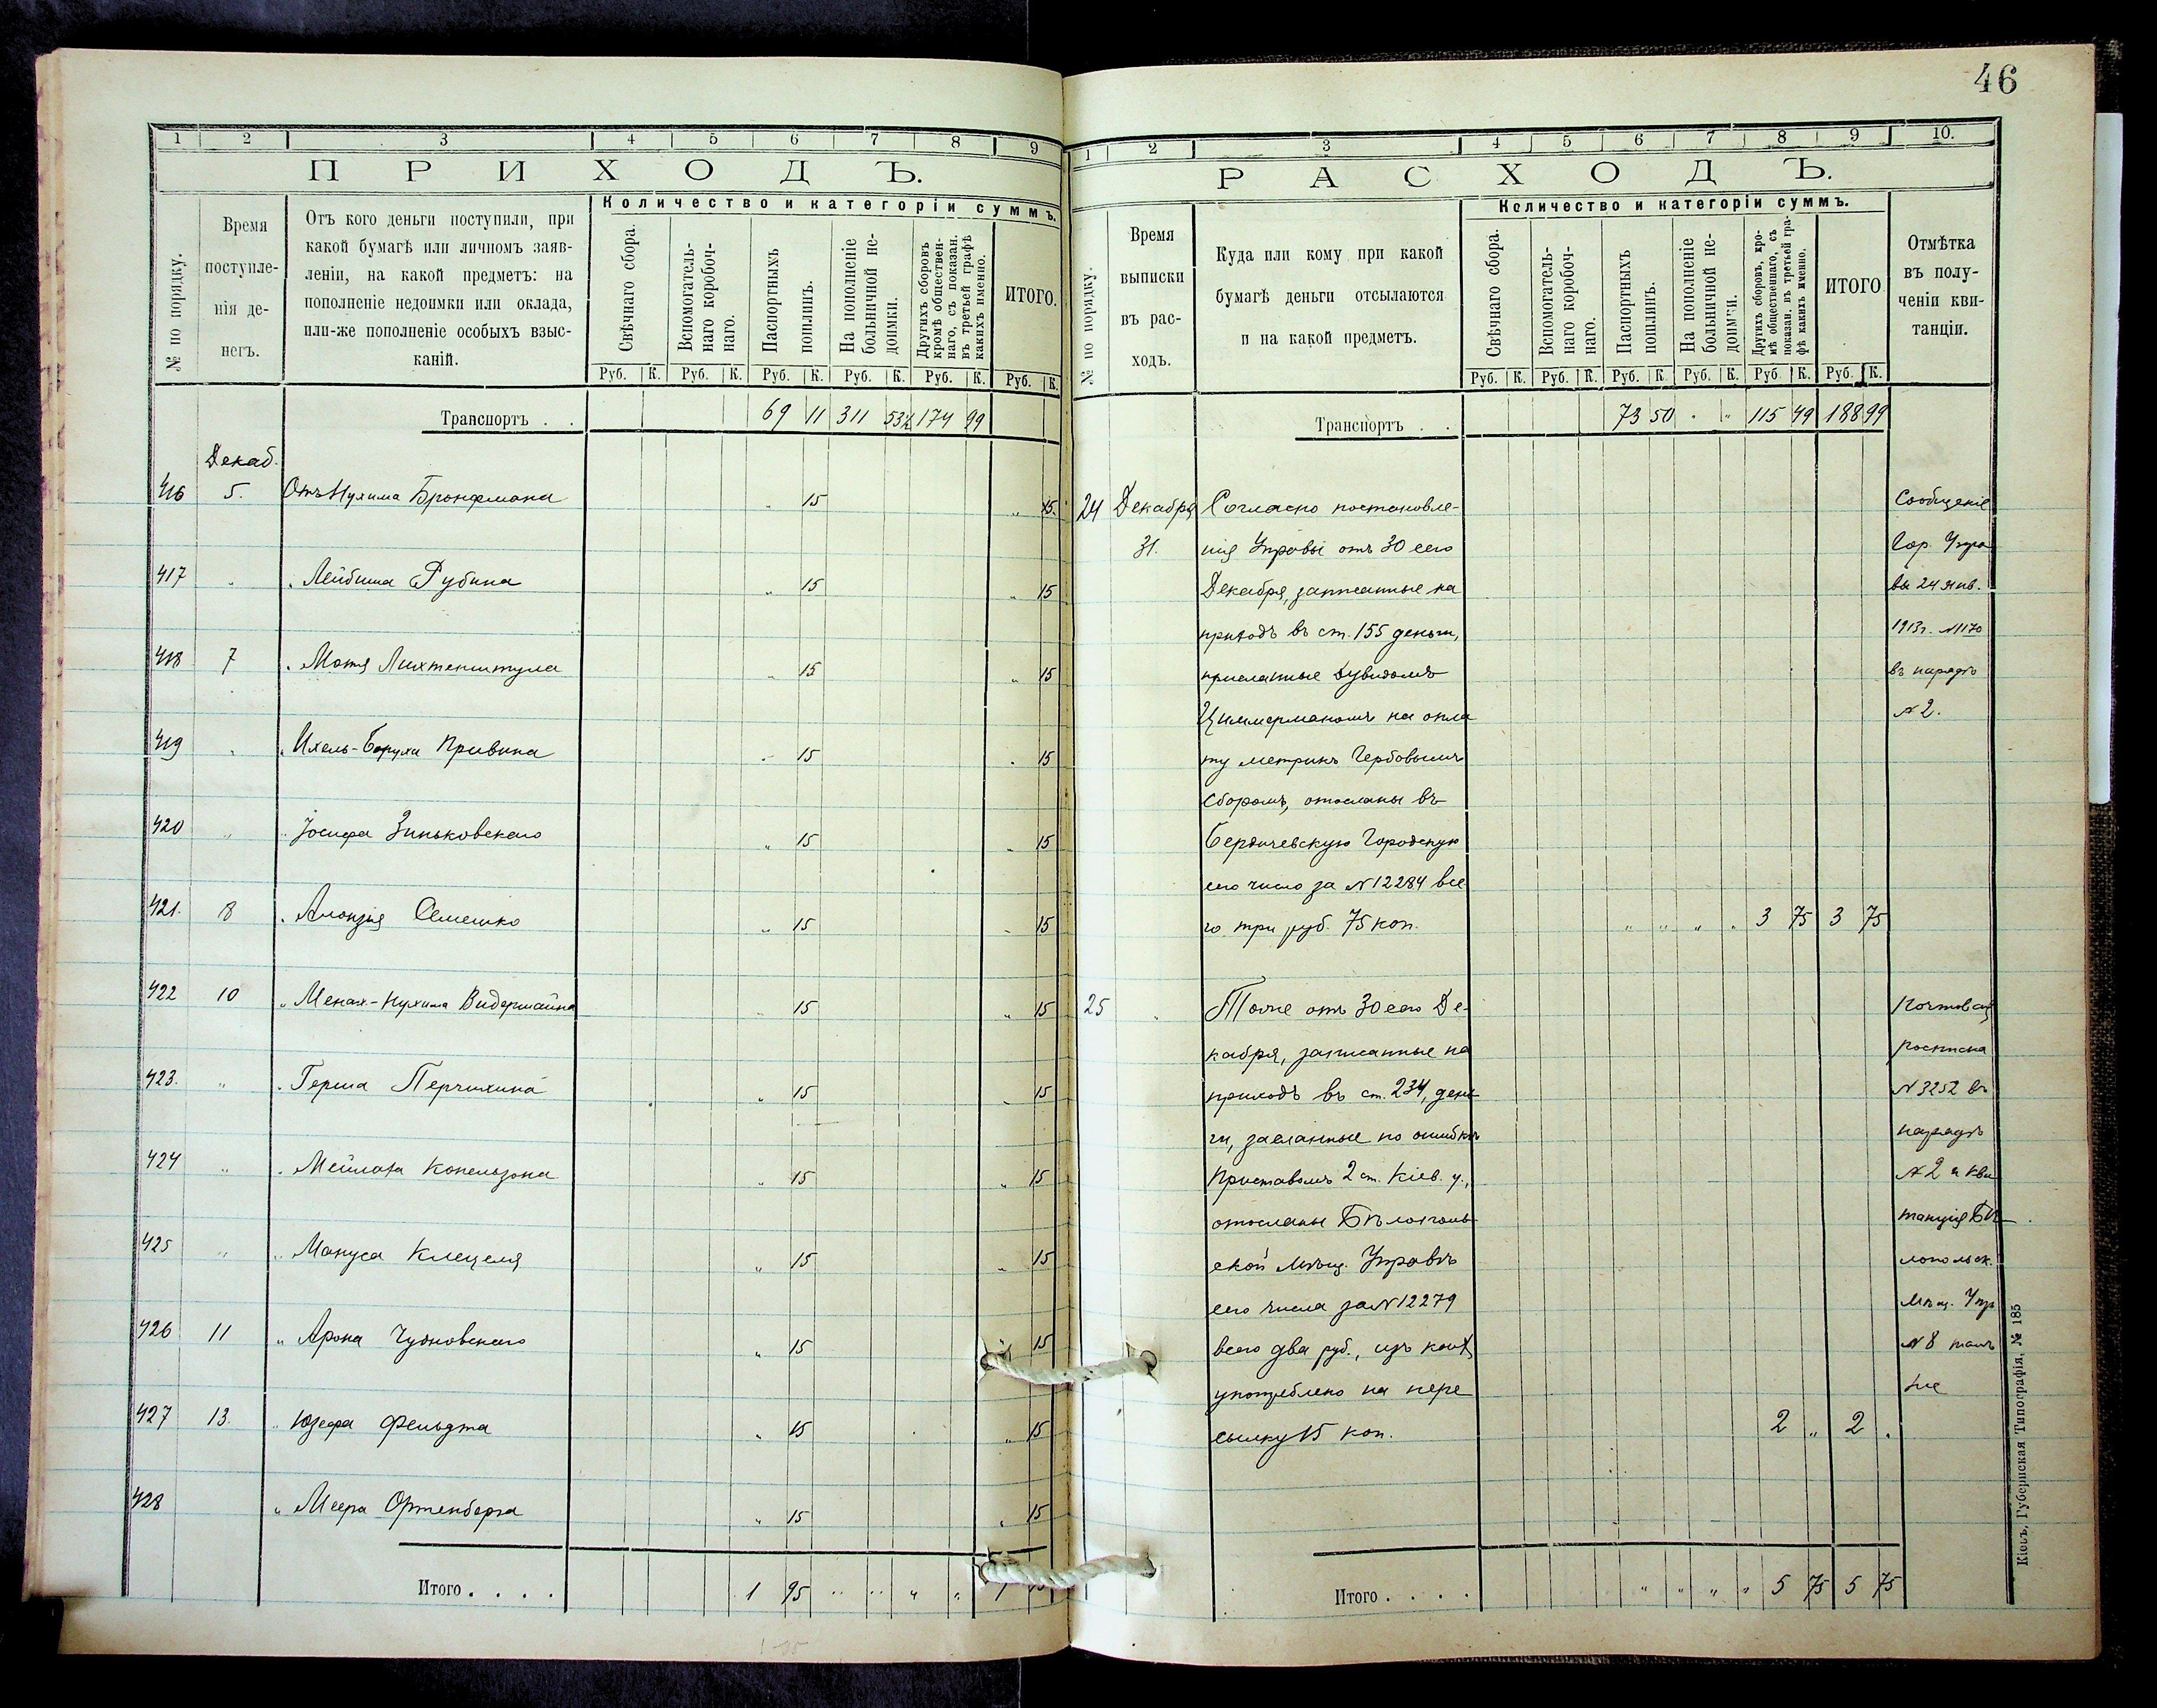 46
1 2 3 4 5 6 7 8 9
ПРИХОДЪ.
№ по порядку.
Время поступле-
нія де-
негъ.
Отъ кого деньги поступили, при
какой бумагѣ или личномъ заяв-
леніи, на какой предметъ: на
пополненіе недоимки или оклада,
или-же пополненіе особыхъ взыс-
каній.
Количество и категоріи суммъ.
Свѣчнаго сбора.
Вспомогатель-
наго коробоч-
наго.
Паспортныхъ
пошлинъ.
На пополненіе
больничной не-
доимки.
Другихъ сборовъ
кромѣ обществен-
наго, съ показан.
въ третьей графѣ
какихъ именно.
ИТОГО.
Руб. К. Руб. К. Руб. К. Руб. К. Руб. К. Руб. К.
Транспортъ . . 69 11 311 53½ 174 99
Декаб.
416 5. Отъ Нухима Бронфмана " 15 " 15.
417 " " Лейбиша Рубина " 15 " 15
418 7 " Мотя Лихтенштула " 15 " 15
419 " " Ихель-Боруха Привина " 15 " 15
420 " " Іосифа Зиньковскаго " 15 " 15
421. 8 " Алоизія Семешко " 15 " 15
422 10 " Менах-Нухима Видермайна " 15 " 15
423. " " Герша Перчихина " 15 " 15
424 " " Мейлаха Копельзона " 15 " 15
425 " " Мануса Клецеля " 15 " 15
426 11 " Арона Чудновскаго " 15 " 15
427 13 " Юзефа Фельдта " 15 " 15
428 " Меера Ортенберга " 15 " 15
Итого . . . . 1 95 " " " " 1
1 2 3 4 5 6 7 8 9 10.
РАСХОДЪ.
№ по порядку.
Время
выписки
въ рас-
ходъ.
Куда или кому при какой
бумагѣ деньги отсылаются
и на какой предметъ.
Количество и категоріи суммъ.
Свѣчнаго сбора.
Вспомогатель-
наго коробоч-
наго.
Паспортныхъ
пошлинъ.
На пополненіе
больничной не-
доимки.
Другихъ сборовъ, кро-
мѣ общественнаго, съ
показан. въ третьей гра-
фѣ какихъ именно.
ИТОГО
Отмѣтка
въ полу-
ченіи кви-
танціи.
Руб. К. Руб. К. Руб. К. Руб. К. Руб. К. Руб. К.
Транспортъ . . 73 50 " " 115 49 188 99
24 Декабря Согласно постановле- Сообщеніе
31. нія Управы отъ 30 сего Гор. Упра
Декабря, записанные на вы 24 янв.
приходъ въ ст. 155 деньги, 1913г. №1170
присланные Дувидомъ въ нарядѣ
Циммерманомъ на опла № 2.
ту метрикъ Гербовымъ
сборомъ, отосланы въ
Бердичевскую Городскую
сего число за №12284 все
го три руб. 75 коп. " " " " 3 75 3 75
25 " Тоже отъ 30 сего Де- Почтовая
кабря, записанные на росписка
приходъ въ ст. 234, день №3252 въ
ги, засланные по ошибкѣ нарядѣ
Приставомъ 2 ст. Кіев. у., № 2 и кви
отосланы Бѣлополь танція Бѣ
ской Мѣщ. Управѣ лопольск.
сего числа за №12279 Мѣщ. Упр
всего два руб., изъ коихъ № 8 тамъ
употреблено на пере же
сылку 15 коп. 2 " 2 "
Итого . . . . " " " " 5 75 5 75
Кіевъ, Губернская Типографія, № 185